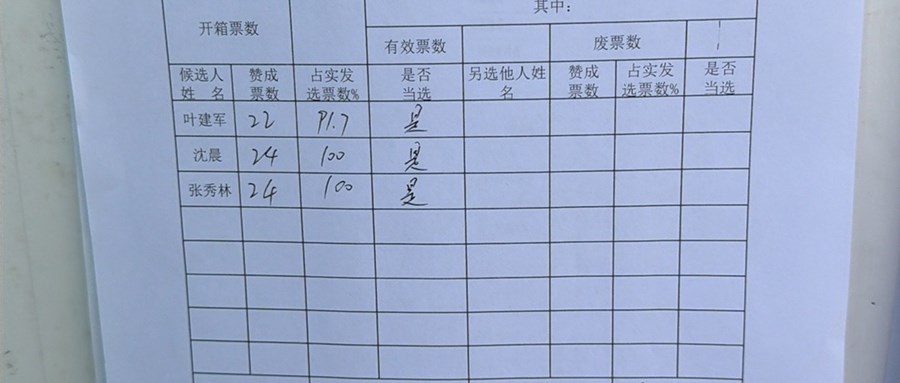 其中：
开箱票数 有效票数 废票数
候选人姓名 赞成票数 占实发选票数% 是否当选 另选他人姓名 赞成票数 占实发选票数% 是否当选
叶建军 22 91.7 是
沈晨 24 100 是
张秀林 24 100 是